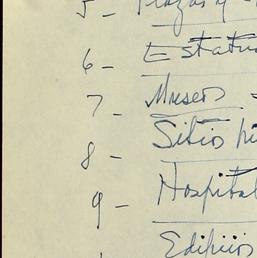 5 - Plazas y
6 - Estatu
7 - Museos -
8 - Sitio hi
9 - Hospital
Edificios